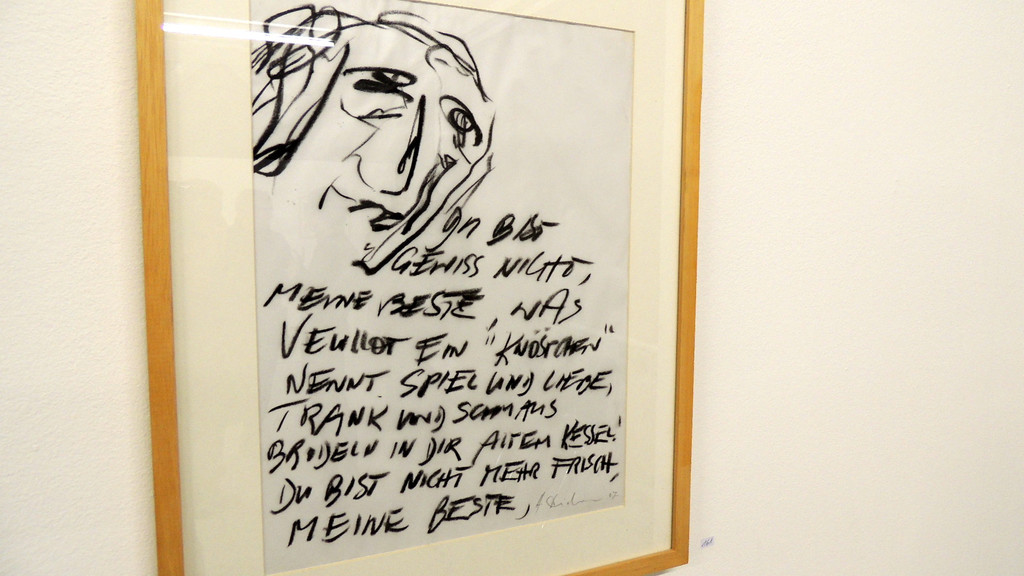 DU BIST
GEWISS NICHT,
MEINE BESTE, WAS
VEUILLOT EIN "KNÖSPCHEN"
NENNT. SPIEL UND LIEBE,
TRANK UND SCHMAUS
BRODELN IN DIR ALTEM KESSEL!
DU BIST NICHT MEHR FRISCH,
MEINE BESTE,